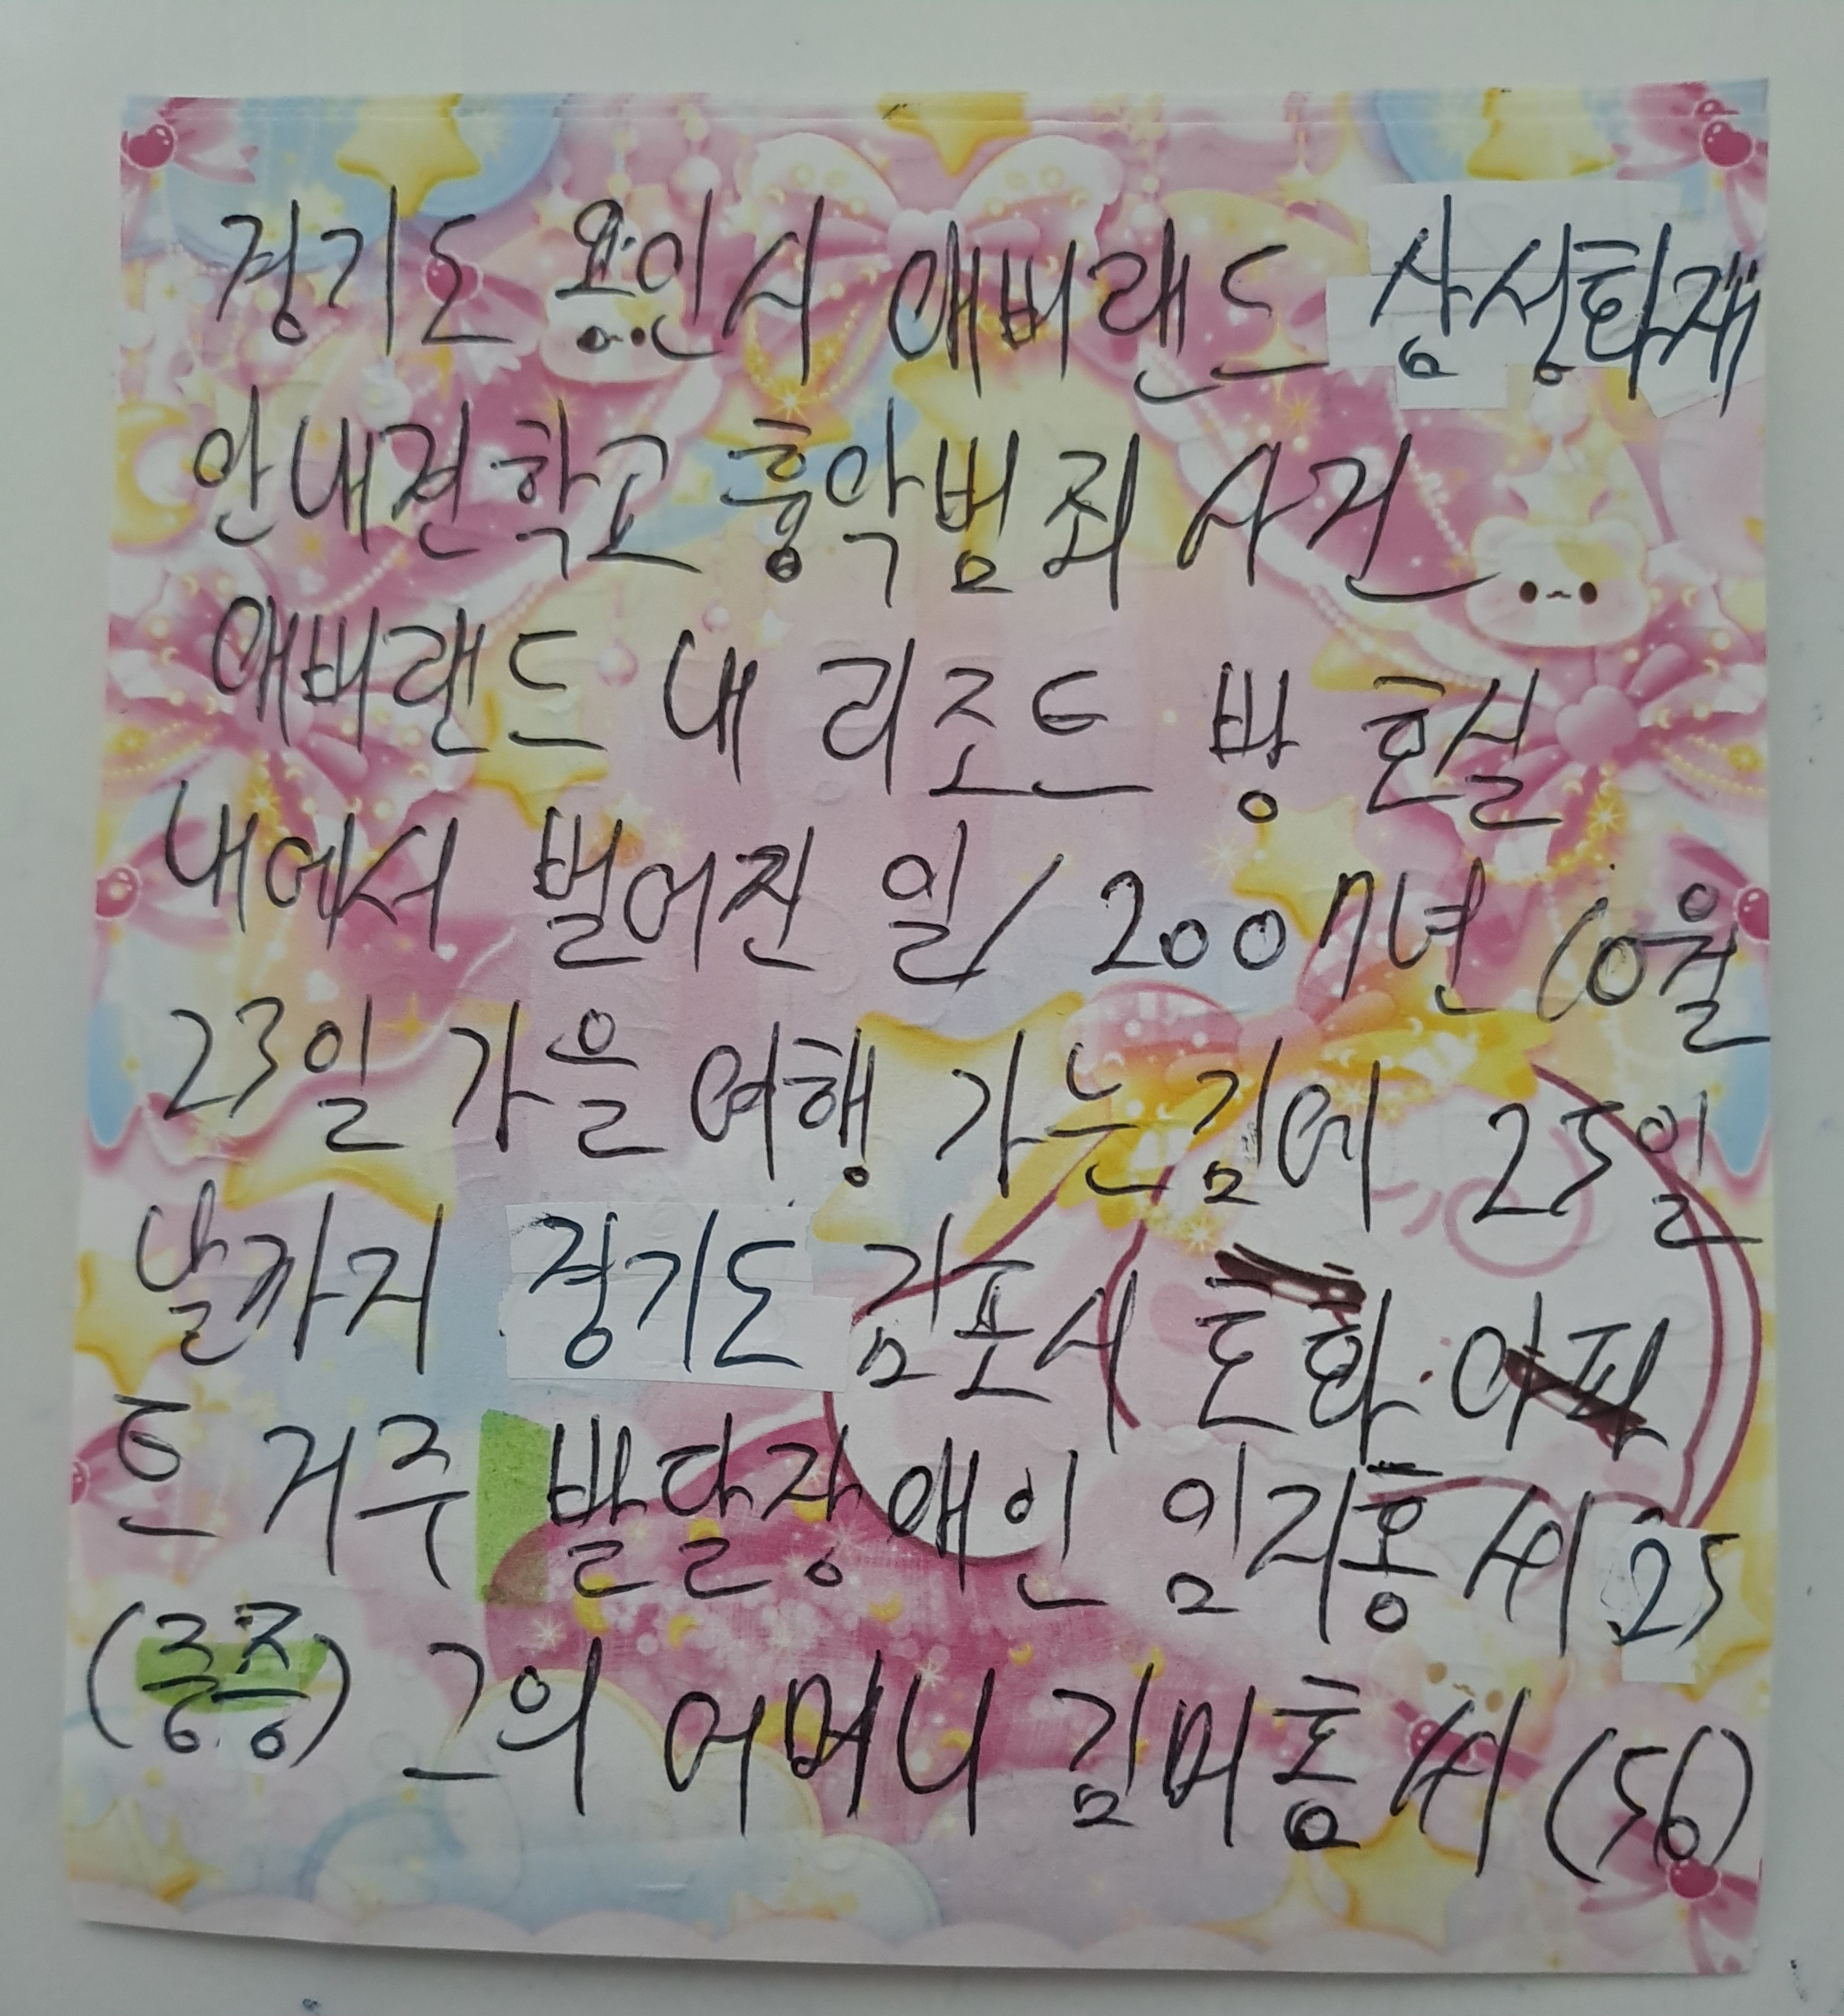 경기도 용인시 애버랜드 삼성화재
안내견학교 흉악범죄 사건
애버랜드 내 리조트 방 호실
내에서 벌어진 일/ 2007년 10월
23일 가을 여행 가는김에 25일
날까지 경기도 김포시 한 아파
트 거주 발달장애인 임지홍씨 25
(중증) 그의 어머니 김머홍씨 (56)